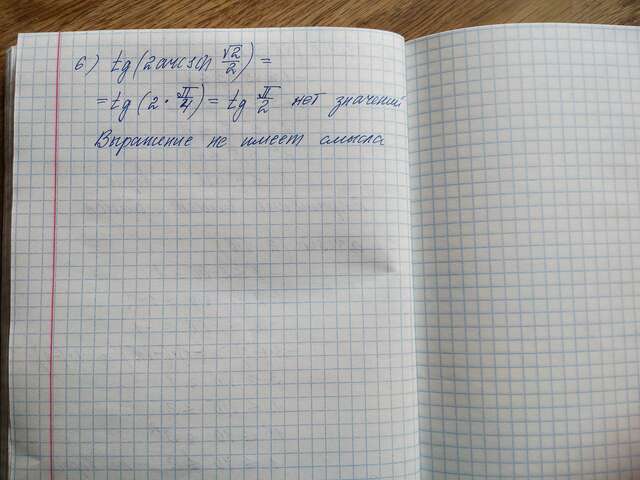 б) tg(2arcsin √2/2) =
= tg(2 · π/4) = tg π/2 нет значений
Выражение не имеет смысла